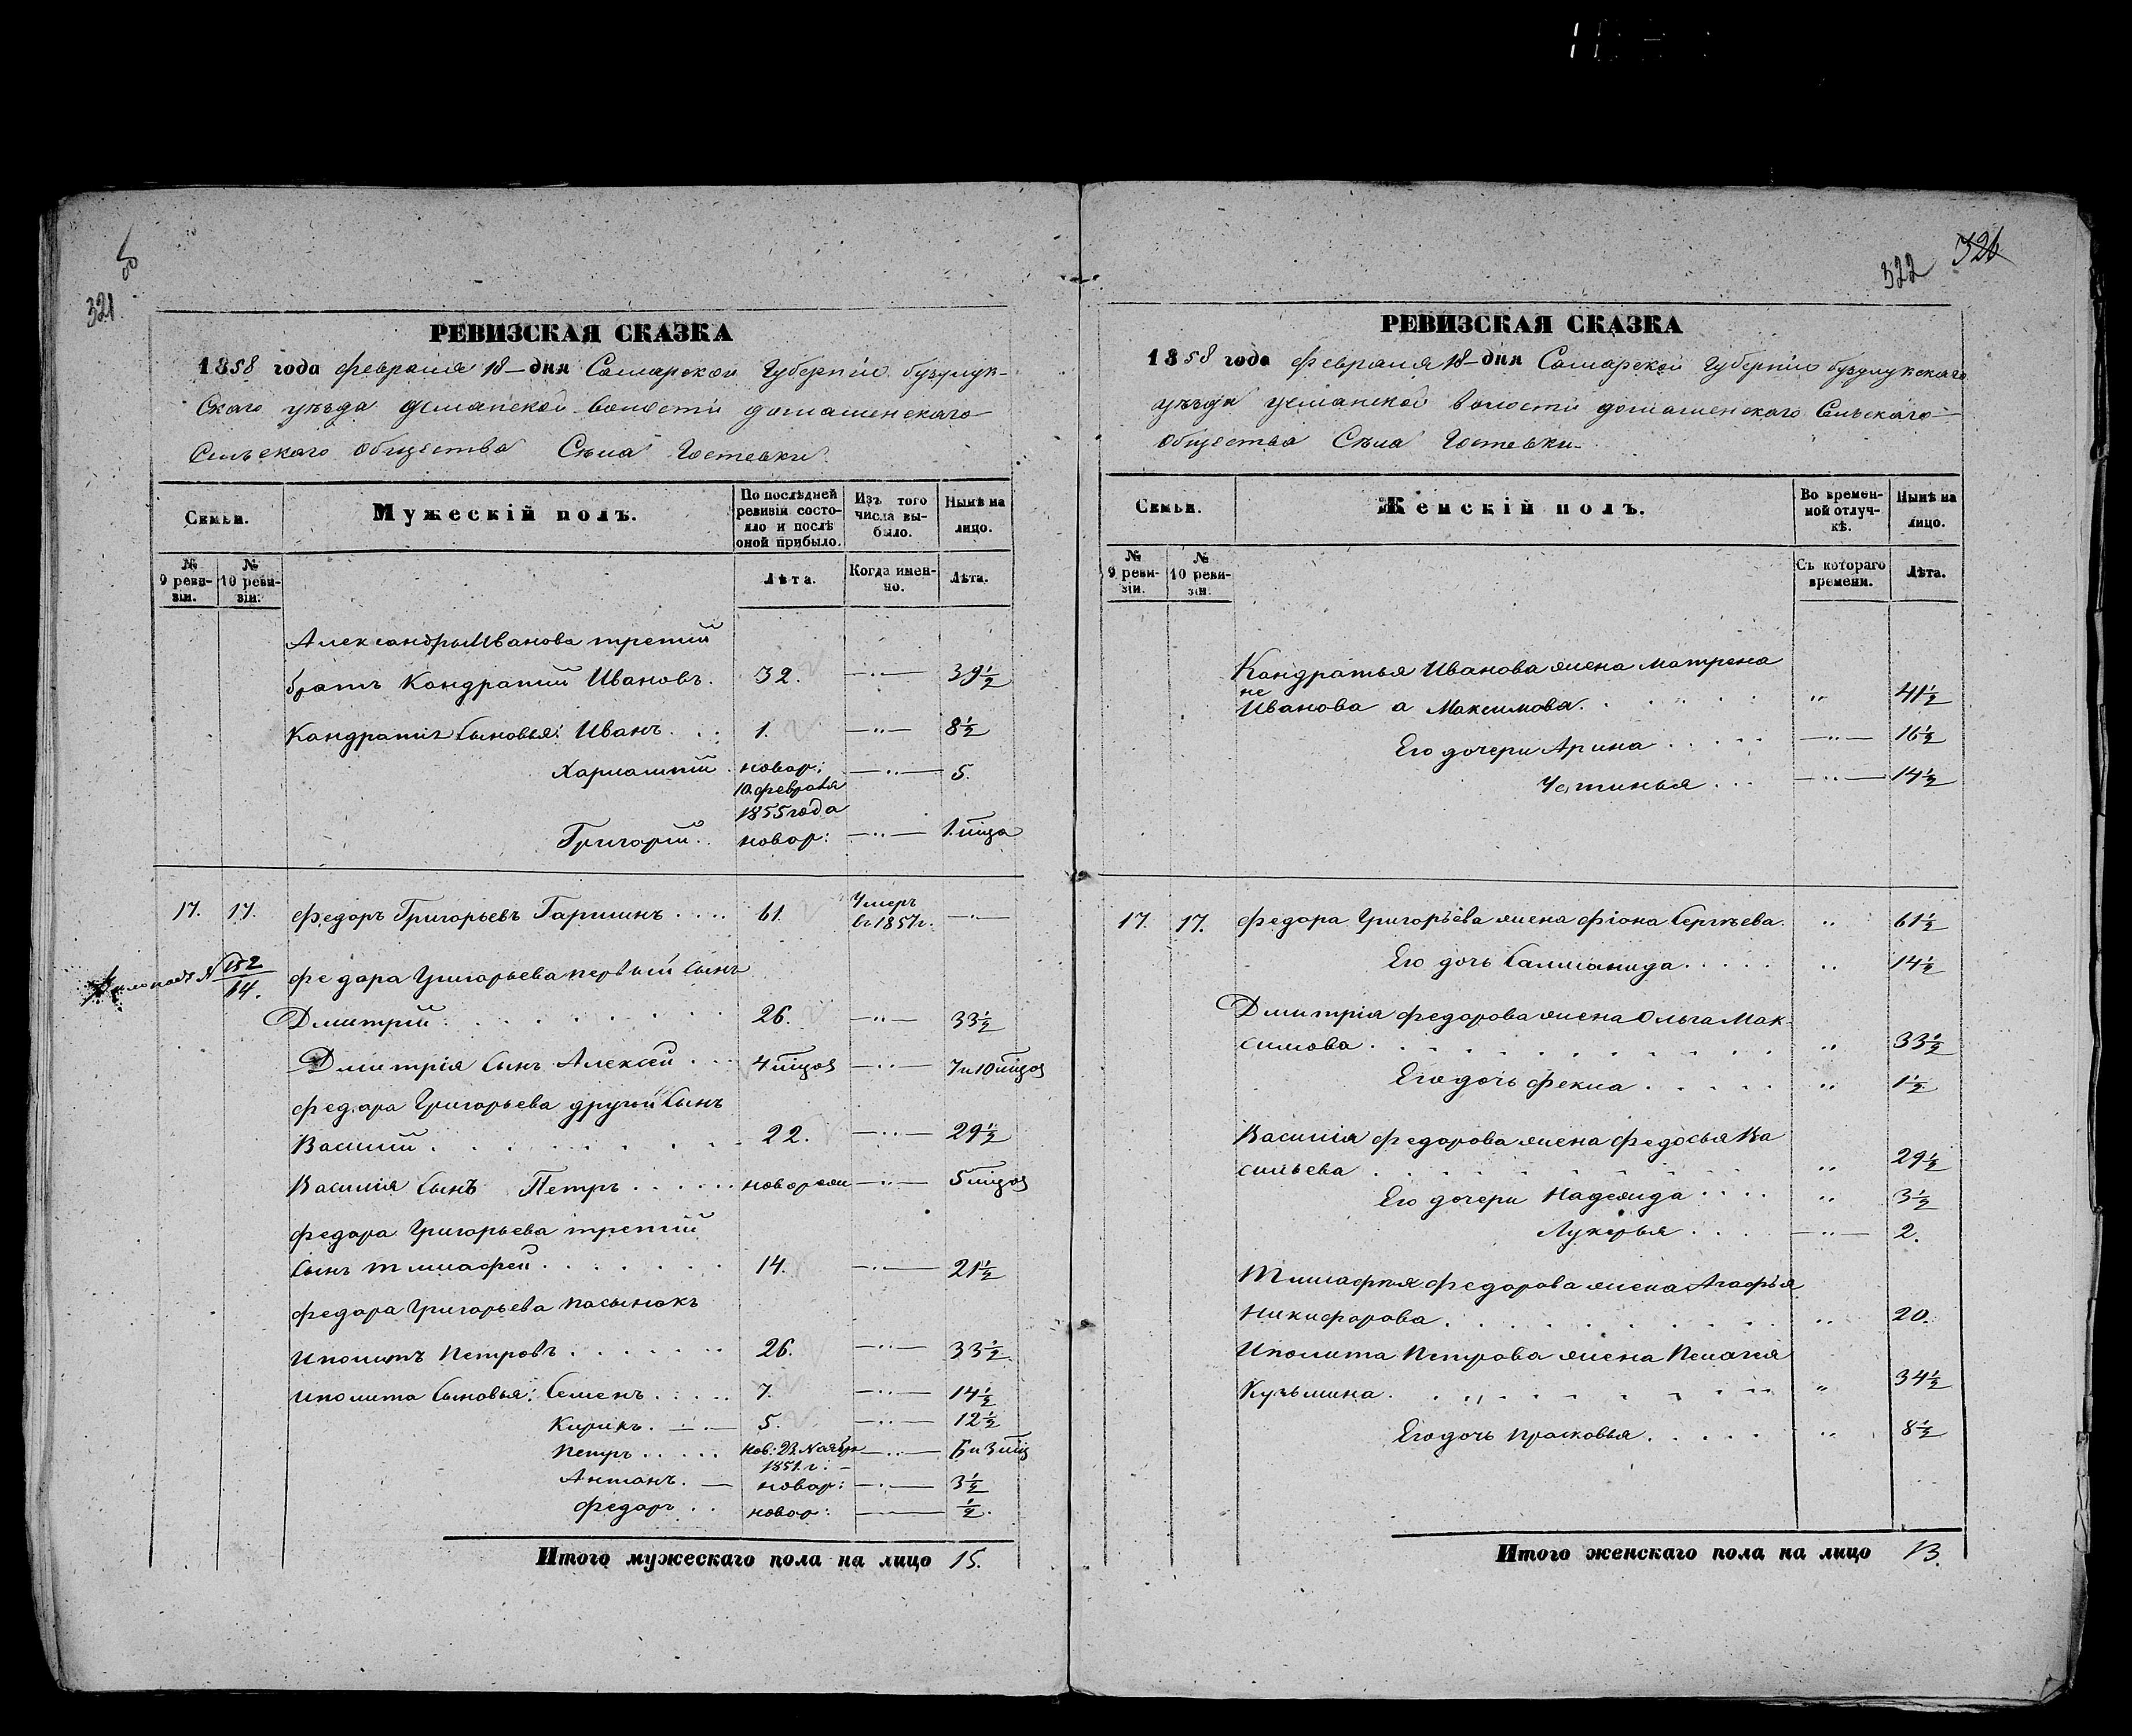 321
РЕВИЗСКАЯ СКАЗКА
1858 года февраля 18 дня Самарской Губерніи бузулук-
скаго уѣзда усманской волости домашенскаго
Сельскаго Общества Сѣла Гостевки
Семьи.
Мужескій полъ.
По послѣдней ревизіи состояло и послѣ оной прибыло.
Изъ того числа выбыло.
Нынѣ на лицо.
№ 9 ревизіи.
№ 10 ревизіи.
Лѣта.
Когда именно.
Лѣта.
Александры Иванова третий
братъ Кондратий Ивановъ. 32. 39½
Кандратія Сыновья: Иванъ. 1. 8½
Харлампий новор: 5.
10. февраля
1855 года
Григорий новор: 1. мца
17. 17. Федоръ Григорьевъ Гаршинъ 61. Умеръ въ 1857 г.
№ 152/14.
Федара Григорьева первый Сынъ
Дмитрий 26. 33½
Дмитрія Сынъ Алексей 4 мцов 7 и 10 мцов
Федара Григорьева другой Сынъ
Василий 22. 29½
Василія Сынъ Петръ новорож 5 мцов
Федара Григорьева третий
Сынъ Тимафей 14. 21½
Федара Григорьева пасынокъ
Иполитъ Петровъ 26. 33½
Иполита Сыновья: Семенъ 7. 14½
Кирикъ. 5. 12½
Петръ нов: 23. Ноября 6 и 3 мц
1851. г.
Антонъ. новор: 3½
Федаръ новор: ½.
Итого мужескаго пола на лицо 15.
322 326
РЕВИЗСКАЯ СКАЗКА
1858 года февраля 18 дня Самарской Губерніи бузулукскаго
уѣзда усманской волости домашенскаго Сельскаго
Общества Сѣла Гостевки.
Семьи.
Женскій полъ.
Во временной отлучкѣ.
Нынѣ на лицо.
№ 9 ревизіи.
№ 10 ревизіи.
Съ котораго времени.
Лѣта.
Кандратья Иванова жена Матрена
не
Иванова а Максимова. 41½
Его дочери Арина 16½
Устинья 14½
17. 17. Федора Григорьева жена Фіона Сергѣева. 61½
Его дочь Саламанида 14½
Дмитрія Федорова жена Ольга Мак-
симова 33½
Его дочь Фекла 1½
Василія Федорова жена Федосья Ва
сильева 29½
Его дочери Надежида 3½
Лукерья 2.
Тимафея Федорова жена Агафья
Никифарова 20.
Иполита Петрова жена Пелагея
Кузьмина 34½
Его дочь Прасковья 8½
Итого женскаго пола на лицо 13.